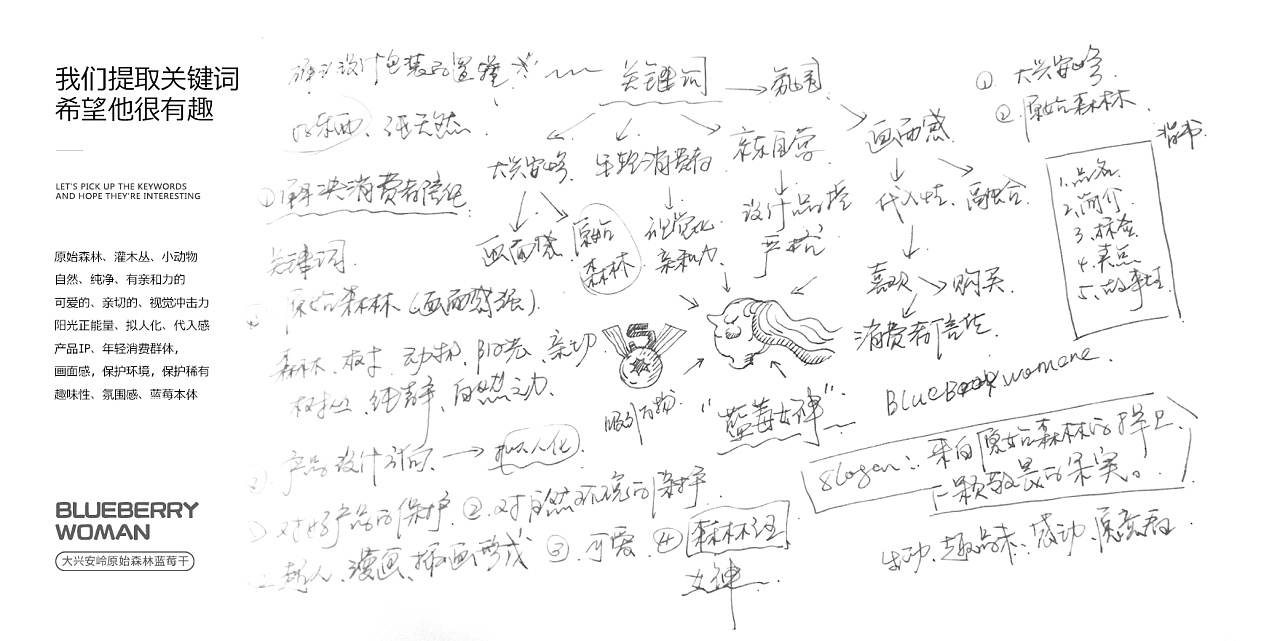 我们提取关键词
希望他很有趣
LET'S PICK UP THE KEYWORDS
AND HOPE THEY'RE INTERESTING
原始森林、灌木丛、小动物
自然、纯净、有亲和力的
可爱的、亲切的、视觉冲击力
阳光正能量、拟人化、代入感
产品IP、年轻消费群体，
画面感，保护环境，保护稀有
趣味性、氛围感、蓝莓本体
BLUEBERRY
WOMAN
大兴安岭原始森林蓝莓干
关键词
氛围
好东西、纯天然
①解决消费者信任
大兴安岭
年轻消费者
京东自营
画面感
画面感
原始
森林
视觉化
亲和力
设计品控
严格
代入性
融合
喜欢
购买
消费者信任
① 大兴安岭
② 原始森林
背书
1、品名
2、简介
3、标签
4、卖点
5、故事性
关键词
原始森林（画面感强）
森林、树木、动物、阳光、亲切
纯静、自然之力
"蓝莓女神"
产品设计方向 → 拟人化
①对好产品的保护 ②对自然环境的保护
漫画、插画形式 ③可爱 ④森林
女神
Slogan：来自原始森林的
一颗 的果实。
感动、原意